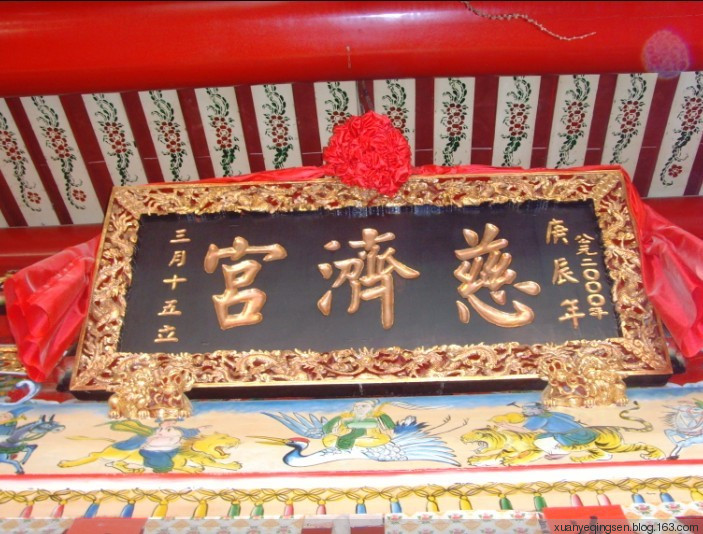 公元二〇〇〇年
庚辰年
慈濟宮
三月十五立
xuanyeqingsen.blog.163.com